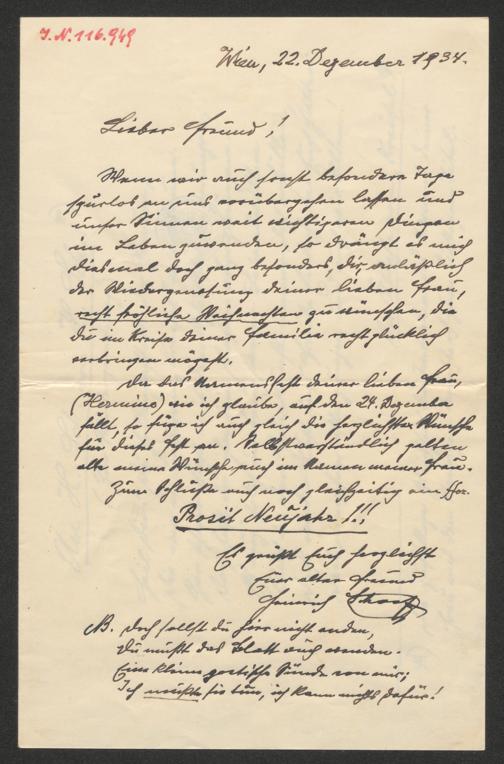 I. N. 116.949
Wien, 22. Dezember 1934.
Lieber Freund!
Wenn wir auch sonst besondere Tage
spurlos an uns vorübergehen lassen und
unser Sinnen weit wichtigeren Dingen
im Leben zuwenden, so drängt es mich
diesmal doch ganz besonders, dir, anläßlich
der Wiedergenesung deiner lieben Frau,
recht fröhliche Weihnachten zu wünschen, die
du im Kreise deiner Familie recht glücklich
verbringen mögest.
Da das Namensfest deiner lieben Frau,
(Hermine) wie ich glaube, auf den 24. Dezember
fällt, so füge ich auch gleich die herzlichsten Wünsche
für dieses Fest an. Selbstverständlich gelten
alle meine Wünsche auch im Namen meiner Frau.
Zum Schluße auch noch gleichzeitig ein
Prosit Neujahr!!!
Es grüßt Euch herzlichst
Euer alter Freund
Heinrich
NB. Doch sollst du hier nicht enden,
Du mußt das Blatt auch wenden.
Eine kleine poetische Sünde von mir;
Ich mußte sie tun, ich kann nichts dafür!